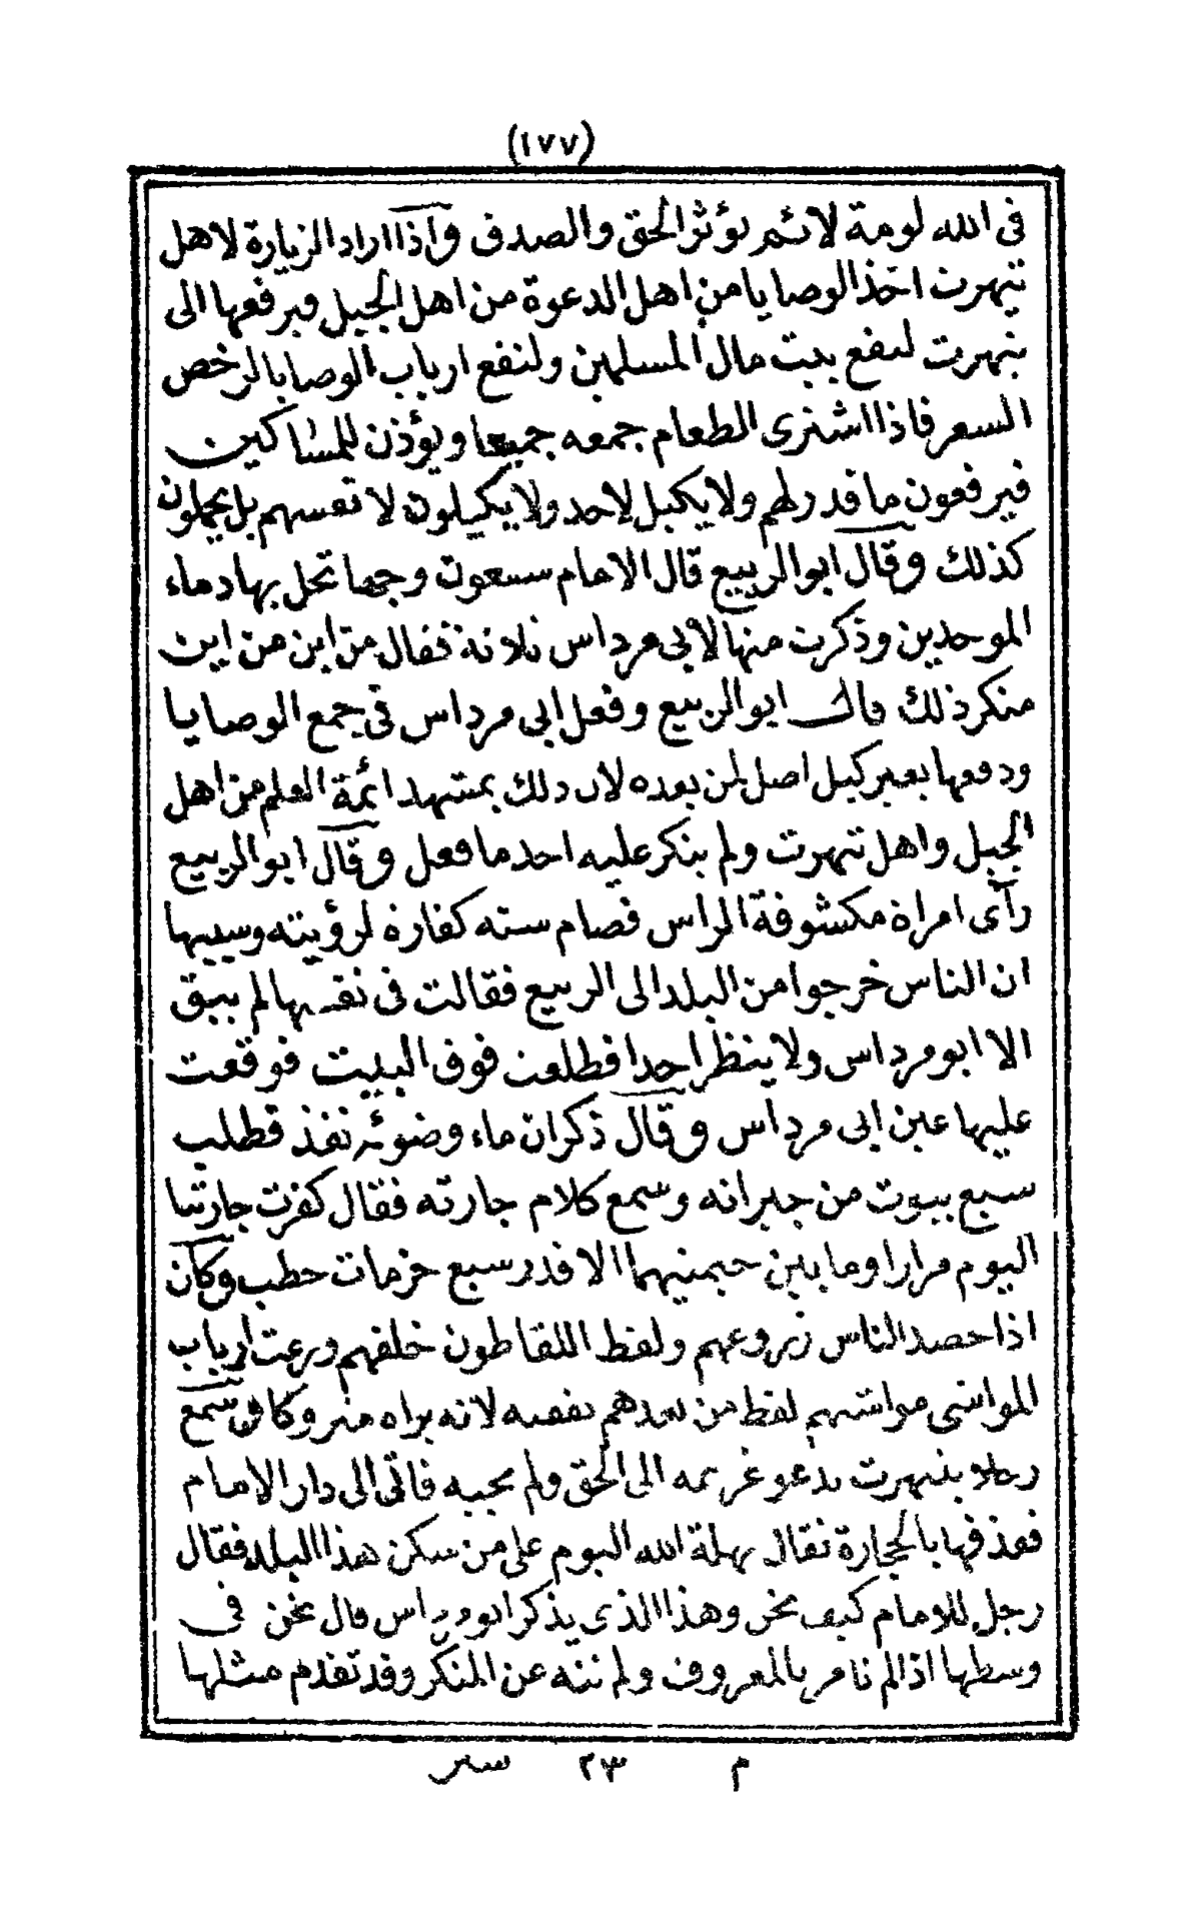 (١٧٧)
فى الله لومة لائم يؤثر الحق والصدق واذا اراد الزيارة لاهل
تيهرت اخذ الوصايا من اهل الدعوة من اهل الجبل فيرفعها الى
تيهرت لنفع بيت مال المسلمين ولنفع ارباب الوصايا لرخص
السعر فاذا اشترى الطعام جمعه جميعا ويؤذن للمساكين
فيرفعون ما قدر لهم ولا يكيل لاحد ولا يكيلون لانفسهم بل يحملون
كذلك وقال ابو الربيع قال الامام سبعون وجها تحل بها دماء
الموحدين وذكرت منها لابى مرداس ثلاثة فقال من اين من اين
منكر ذلك قال ابو الربيع وفعل ابى مرداس فى جمع الوصايا
ودفعها بغير كيل اصل لمن بعده لان ذلك بمشهد ائمة العلم من اهل
الجبل واهل تيهرت ولم ينكر عليه احد ما فعل وقال ابو الربيع
رآى امراة مكشوفة الراس فصام سنة كفارة لرؤيته وسببها
ان الناس خرجوا من البلد الى الربيع فقالت فى نفسها لم يبق
الا ابو مرداس ولا ينظر احدا فطلعت فوق البيت فوقعت
عليها عين ابى مرداس وقال ذكر ان ماء وضوئه نفذ فطلب
سبع بيوت من جيرانه وسمع كلام جارته فقال كفرت جارتنا
اليوم مرارا وما بين خيمتيهما الا قدر سبع حزمات حطب وكان
اذا حصد الناس زروعهم ولقط اللقاطون خلفهم ورعت ارباب
المواشى مواشيهم لقط من بعدهم نفقته لانه يراه منر وكا وسمع
رجلا بتيهرت يدعو غريمه الى الحق ولم يجبه فاتى الى دار الامام
فقذفها بالحجارة فقال بهلة الله اليوم على من سكن هذا البلد فقال
رجل للامام كيف نحن وهذا الذى يذكر ابو مرداس قال نحن فى
وسطها اذا لم نامر بالمعروف ولم ننه عن المنكر وقد تقدم مثلها
م ٢٣ سير